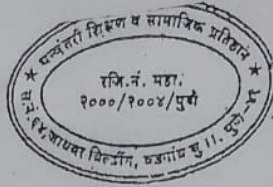 ★ धन्वंतरी शिक्षण व सामाजिक प्रतिष्ठान ★
रजि.नं. महा.
२०००/२००४/पुणे
स.नं. ६४, जाधवर बिल्डींग, वडगांव बु ॥. पुणे-४१